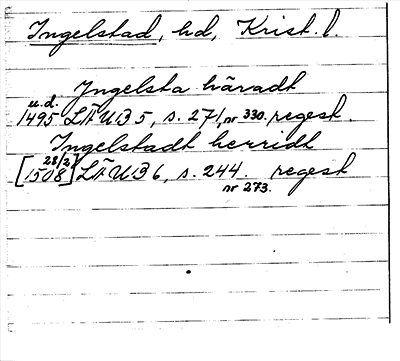 Ingelstad, hd, Krist. l.
Yngelsta häradt
u.d.
1495 LÄUB 5, s. 271, nr 330. regest.
Ingelstadt herridt
[28/2 1508] LÄUB 6, s. 244. regest
nr 273.